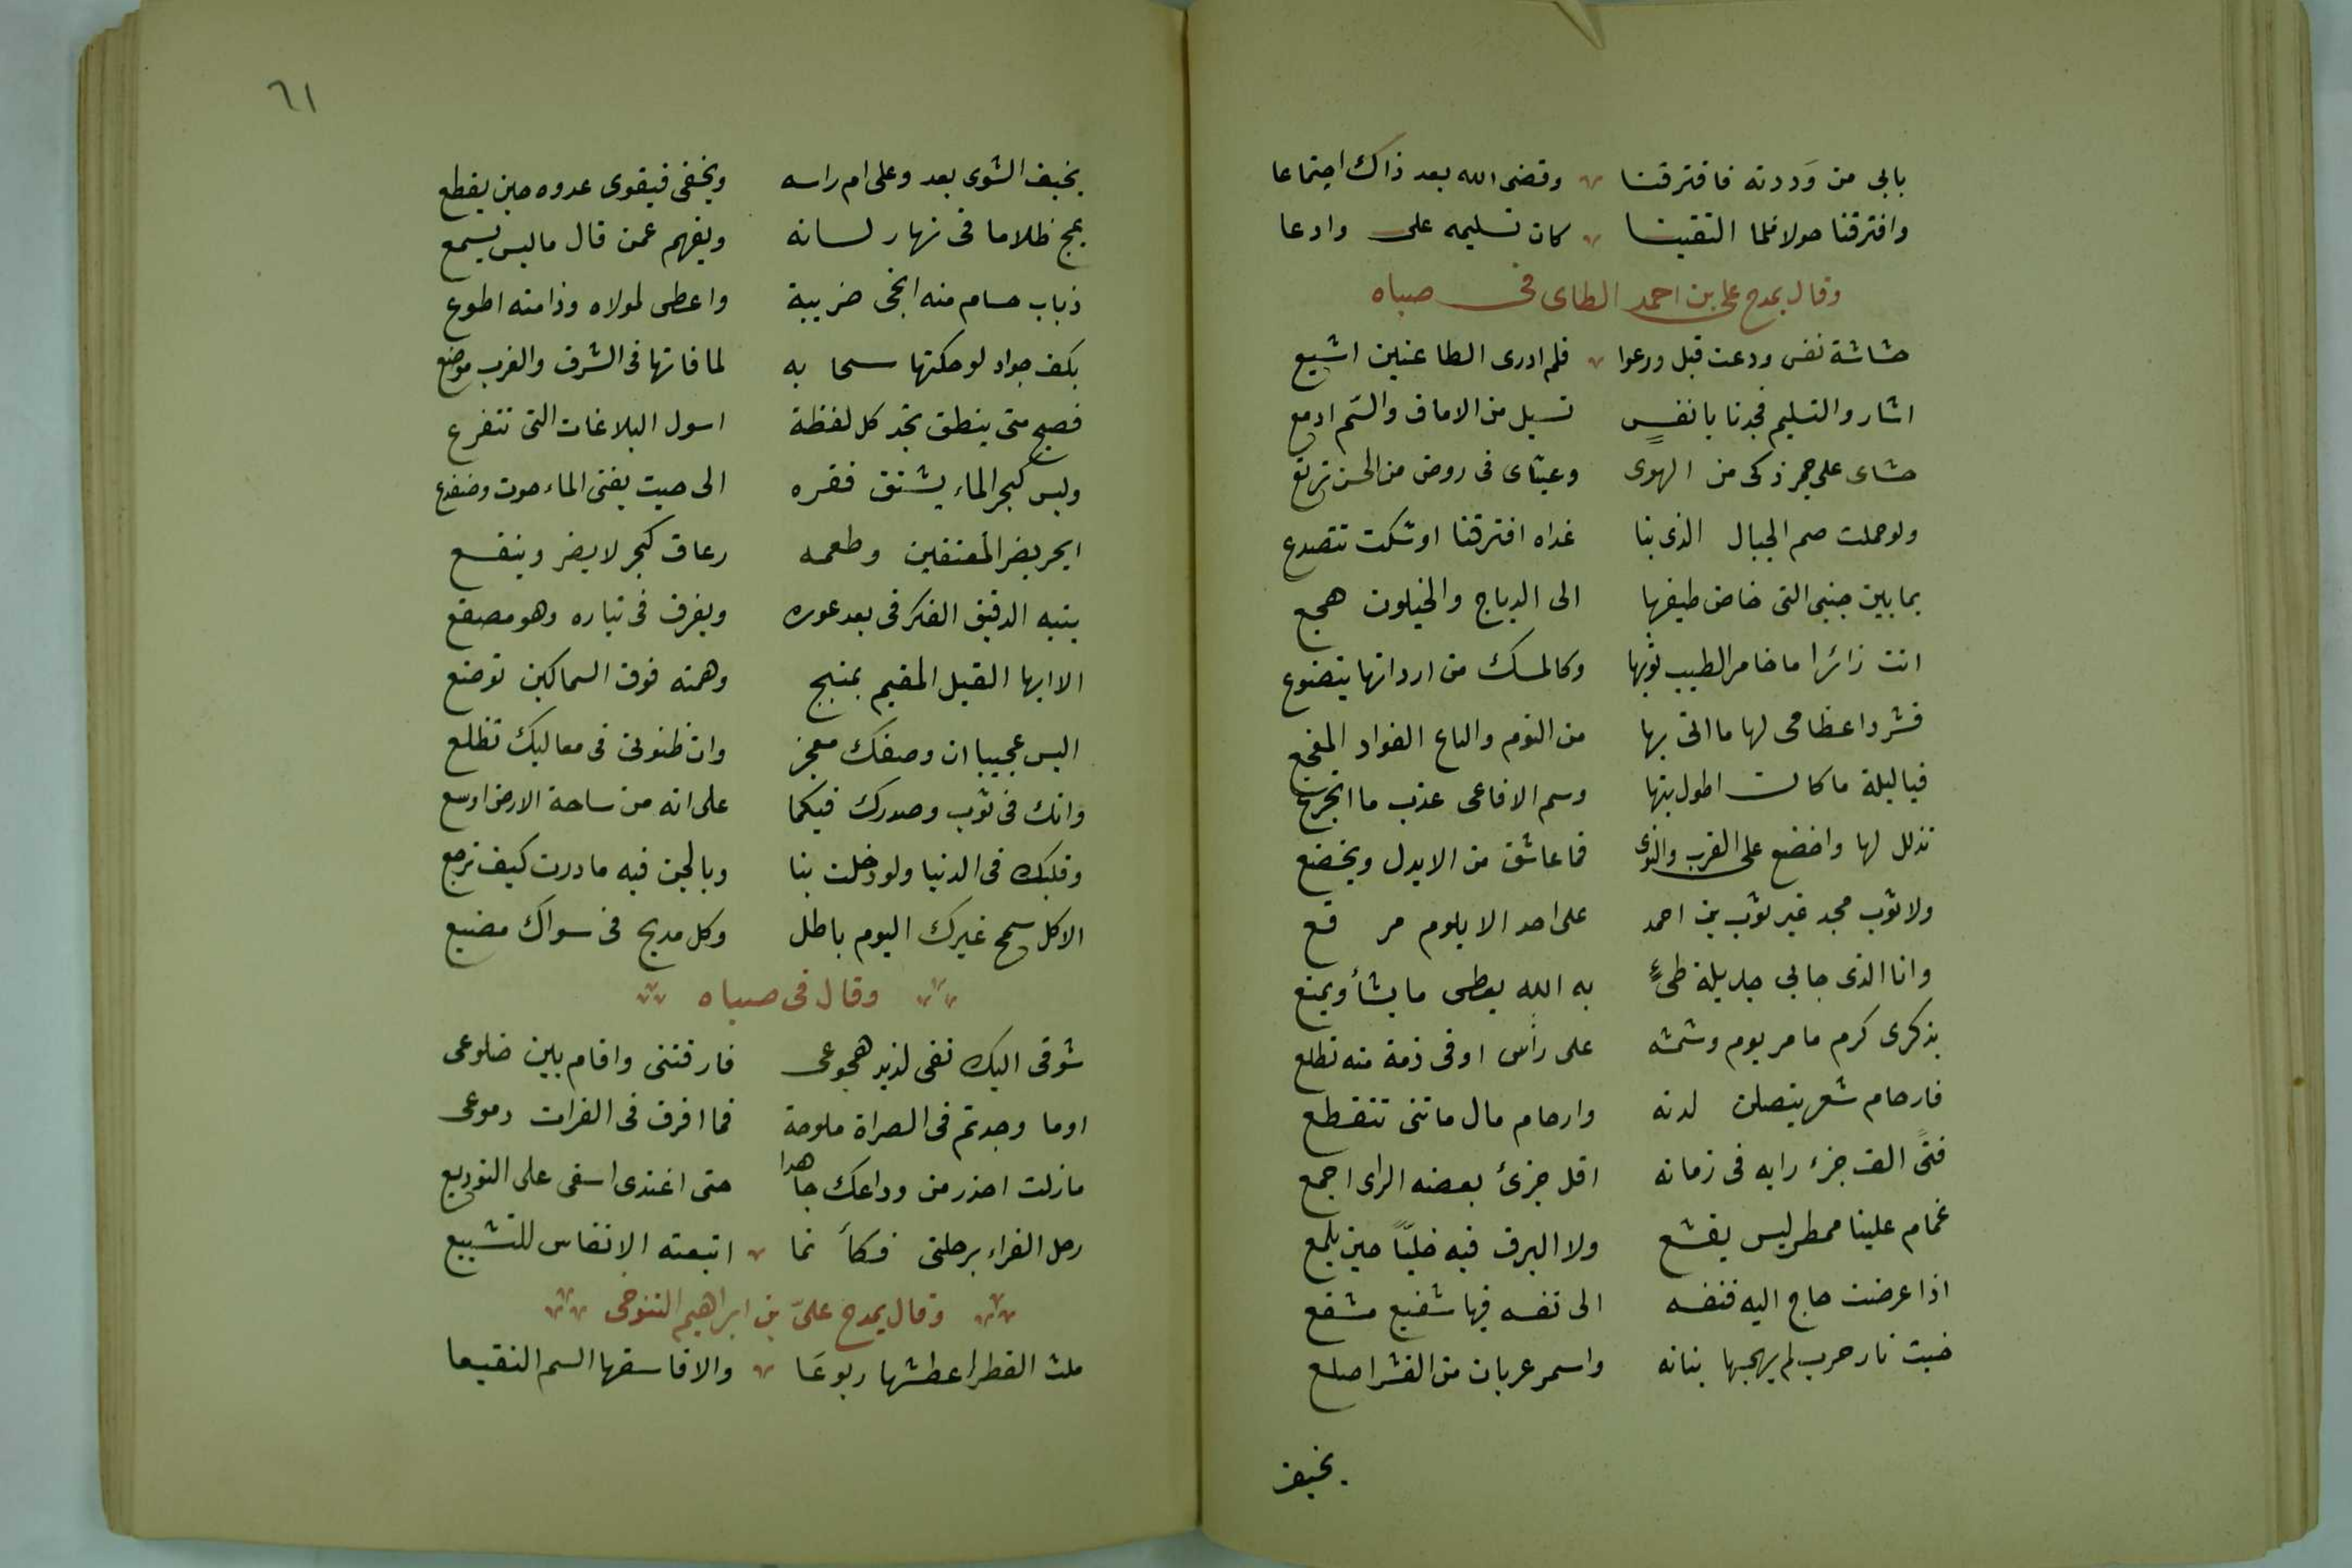 بابى من وَددته فافترقنا وقضى الله بعد ذاك اجتماعا
وافترقنا حولا فلما التقينا كان تسليمه على وادعا
وقال يمدح على بن احمد الطاى فى صباه
حشاشة نفس ودعت قبل ودعوا فلم ادرى الطاعنين اشيع
اشار والتسليم فجدنا بانفسٍ تسيل من الاماق والسّم ادمع
حشاى على جمر ذكى من الهوى وعيناى فى روض من الحسن ترتع
ولو حملت صم الجبال الذى بنا غداه افترقنا اوشكت تتصدع
بما بين جنبى التى خاض طيفها الى الدياج والخيلون هجع
انت زائرا ما خامر الطيب ثوبها وكالمسك من اردانها يتضوع
فشرد اعظامى لها ما اتى بها من النوم والتاع الفواد المفجع
فيا ليلة ما كانت اطول بتها وسم الافاعى عذب ما اتجرع
تذلل لها واخضع على القرب والنوى فما عاشق من لايدل ويخضع
ولا ثوب مجد غير ثوب بن احمد على احد الا بلوم مر قع
وانا الذى جابى جديلة طىءٍ به الله يعطى ما يشأ ويمنع
بذكرى كرم ما مر يوم وشمسه على رأس اوفى ذمة منه تطلع
فارحام شعر يتصلن لدنه وارحام مال ماتنى تتقطع
فتًى الف جزء رايه فى زمانه اقل جزئ بعضه الراى اجمع
غمام علينا ممطر ليس يقشع ولا البرق فيه خلبًّا حين يلمع
اذا عرضت حاج اليه فنفسه الى نفسه فيها شفيع مشفع
خبت نار حرب لم يهجها بنانه واسمر عريان من القشر اصلع
يخيف
٦١
يخيف الشوى بعد وعلى ام راسه ويخفى فيقوى عدوه حين يقطع
يمج ظلاما فى نهار لسانه ويفهم عمن قال ما ليس يسمع
ذباب حسام منه انجى ضريبة واعطى لمولاه وذا منه اطوع
بكف جواد لو حكتها سحابه لما فاتها فى الشرق والغرب موضع
فصيح متى ينطق تجد كل لفظة اسول البلاغات التى تتفرع
وليس كبحر الماء يشتق فقره الى حيث يفنى الماء حوت وضفدع
ابحر يضر المعتفين وطعمه زعاق كبحر لا يضر وينفع
يتيه الدقيق الفكر فى بعد غوره ويغرق فى تياره وهو مصقع
الا ايها القيل المقيم بمنبج وهمته فوق السماكين توضع
اليس عجيبا ان وصفك معجز وان ظنونى فى معاليك تظلع
وانك فى ثوب وصدرك فيكما على انه من ساحة الارض اوسع
وقلبك فى الدنيا ولو دخلت بنا وبالجن فيه ما درت كيف ترجع
الا كل سمح غيرك اليوم باطل وكل مديح فى سواك مضيع
وقال فى صباه
شوقى اليك نفى لذيذ هجوعى فارقتنى واقام بين ضلوعى
اوما وجدتم فى الصراة ملوحة فما افرق فى الفرات دموعى
مازلت احذر من وداعك جاهدا حتى اغتدى اسفى على التوديع
رحل الغراء برحلتى فكأ نما اتبعته الانفاس للتشييع
وقال يمدح علىّ بن ابراهيم التنوخى
ملث القطر اعطشها ربوعَا والا فاسقها السم النقيعا